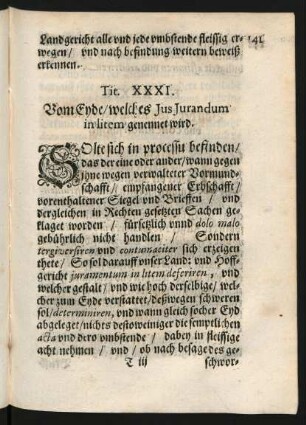 Landgericht alle vnd jede vmbstende fleissig er-
wegen / vnd nach befindung weitern beweiß
erkennen.
141
Tit. XXXI.
Vom Eyde / welches Jus Jurandum
in litem genennet wird.
SOlte sich in processu befinden /
das der eine oder ander / wann gegen
jhne wegen verwalteter Vormund-
schafft / empfangener Erbschafft /
vorenthaltener Siegel vnd Brieffen / vnd
dergleichen in Rechten gesetzten Sachen ge-
klaget worden / fürsetzlich vnnd dolo malo
gebührlich nicht handlen / Sondern
tergiversiren vnd contumaciter sich erzeigen
thete / So sol darauff vnser Land: vnd Hoff-
gericht juramentum in litem deferiren, vnd
welcher gestalt / vnd wie hoch derselbige / wel-
cher zum Eyde verstattet / deßwegen schweren
sol / determiniren, vnd wann gleich socher Eyd
abgeleget / nichts destoweiniger die semptlichen
acta vnd dero vmbstende / dabey in fleissige
acht nehmen / vnd / ob nach besage des ge-
T iij
schwor-